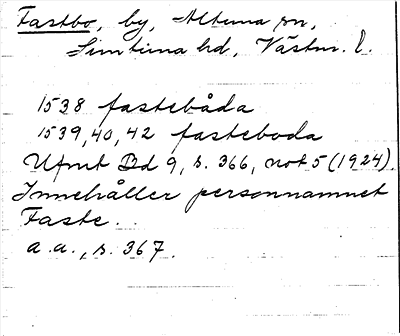 Fastbo, by, Altuna sn,
Simtuna hd, Västm. l.
1538 fastebåda
1539, 40, 42 fasteboda
Ufmt Bd 9, s. 366, not 5 (1924).
Innehåller personnamnet
Faste.
a.a., s. 367.